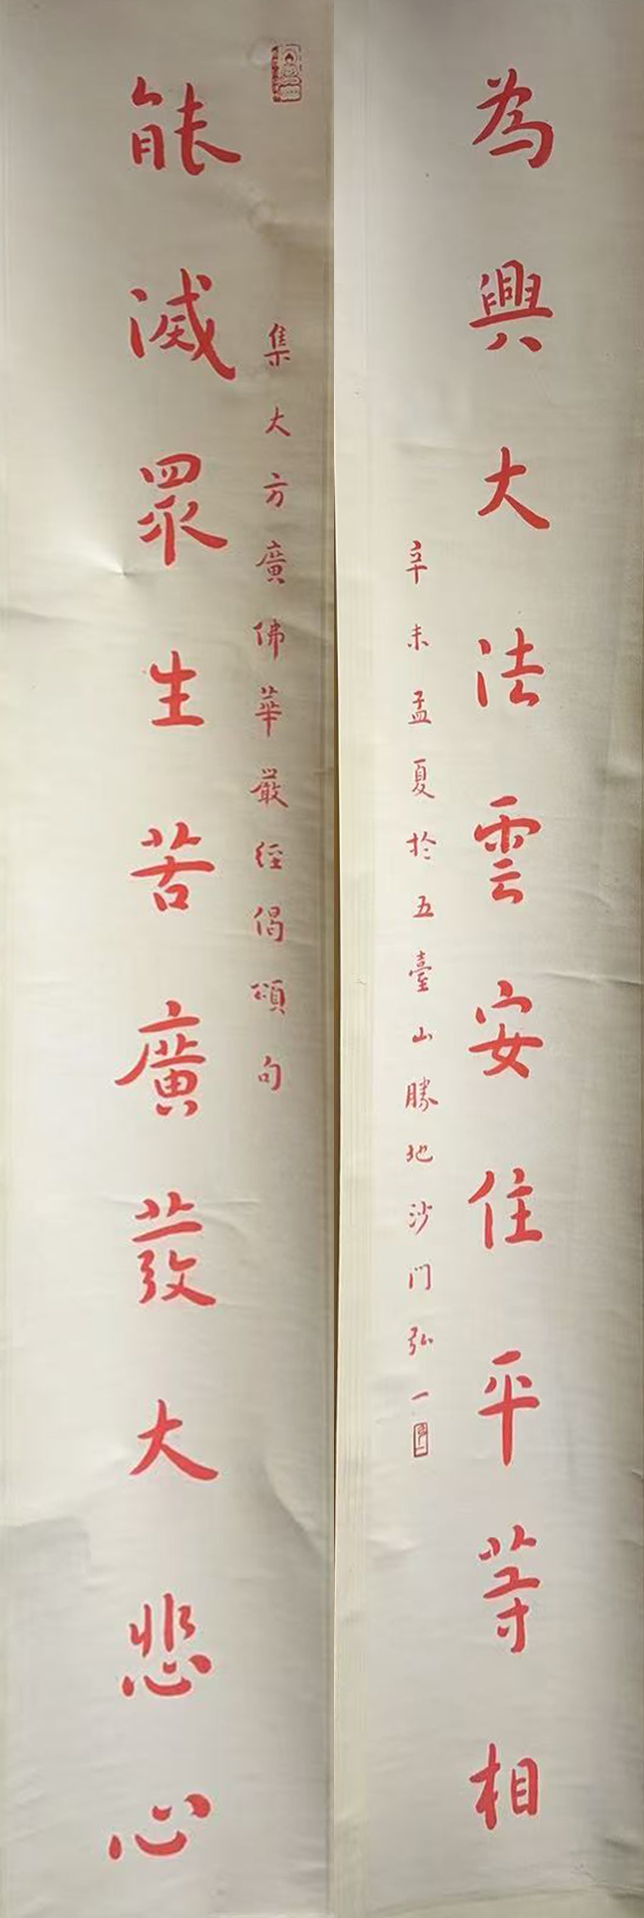 為興大法雲安住平等相
辛未孟夏於五臺山勝地沙門弘一
集大方廣佛華嚴經偈頌句
能滅眾生苦廣發大悲心